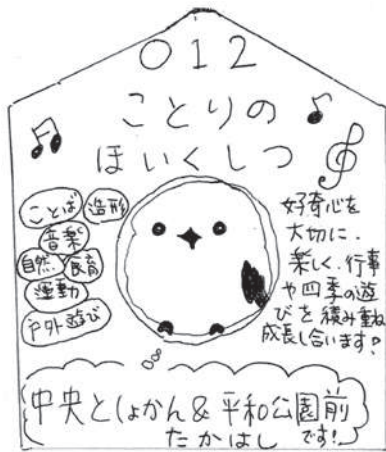 012
ことりの
ほいくしつ
ことば 造形
音楽
自然 食育
運動
戸外遊び
好奇心を
大切に、
楽しく、行事
や四季の遊
びを積み重ね
成長し合います。
中央としょかん&平和公園前
たかはし です!